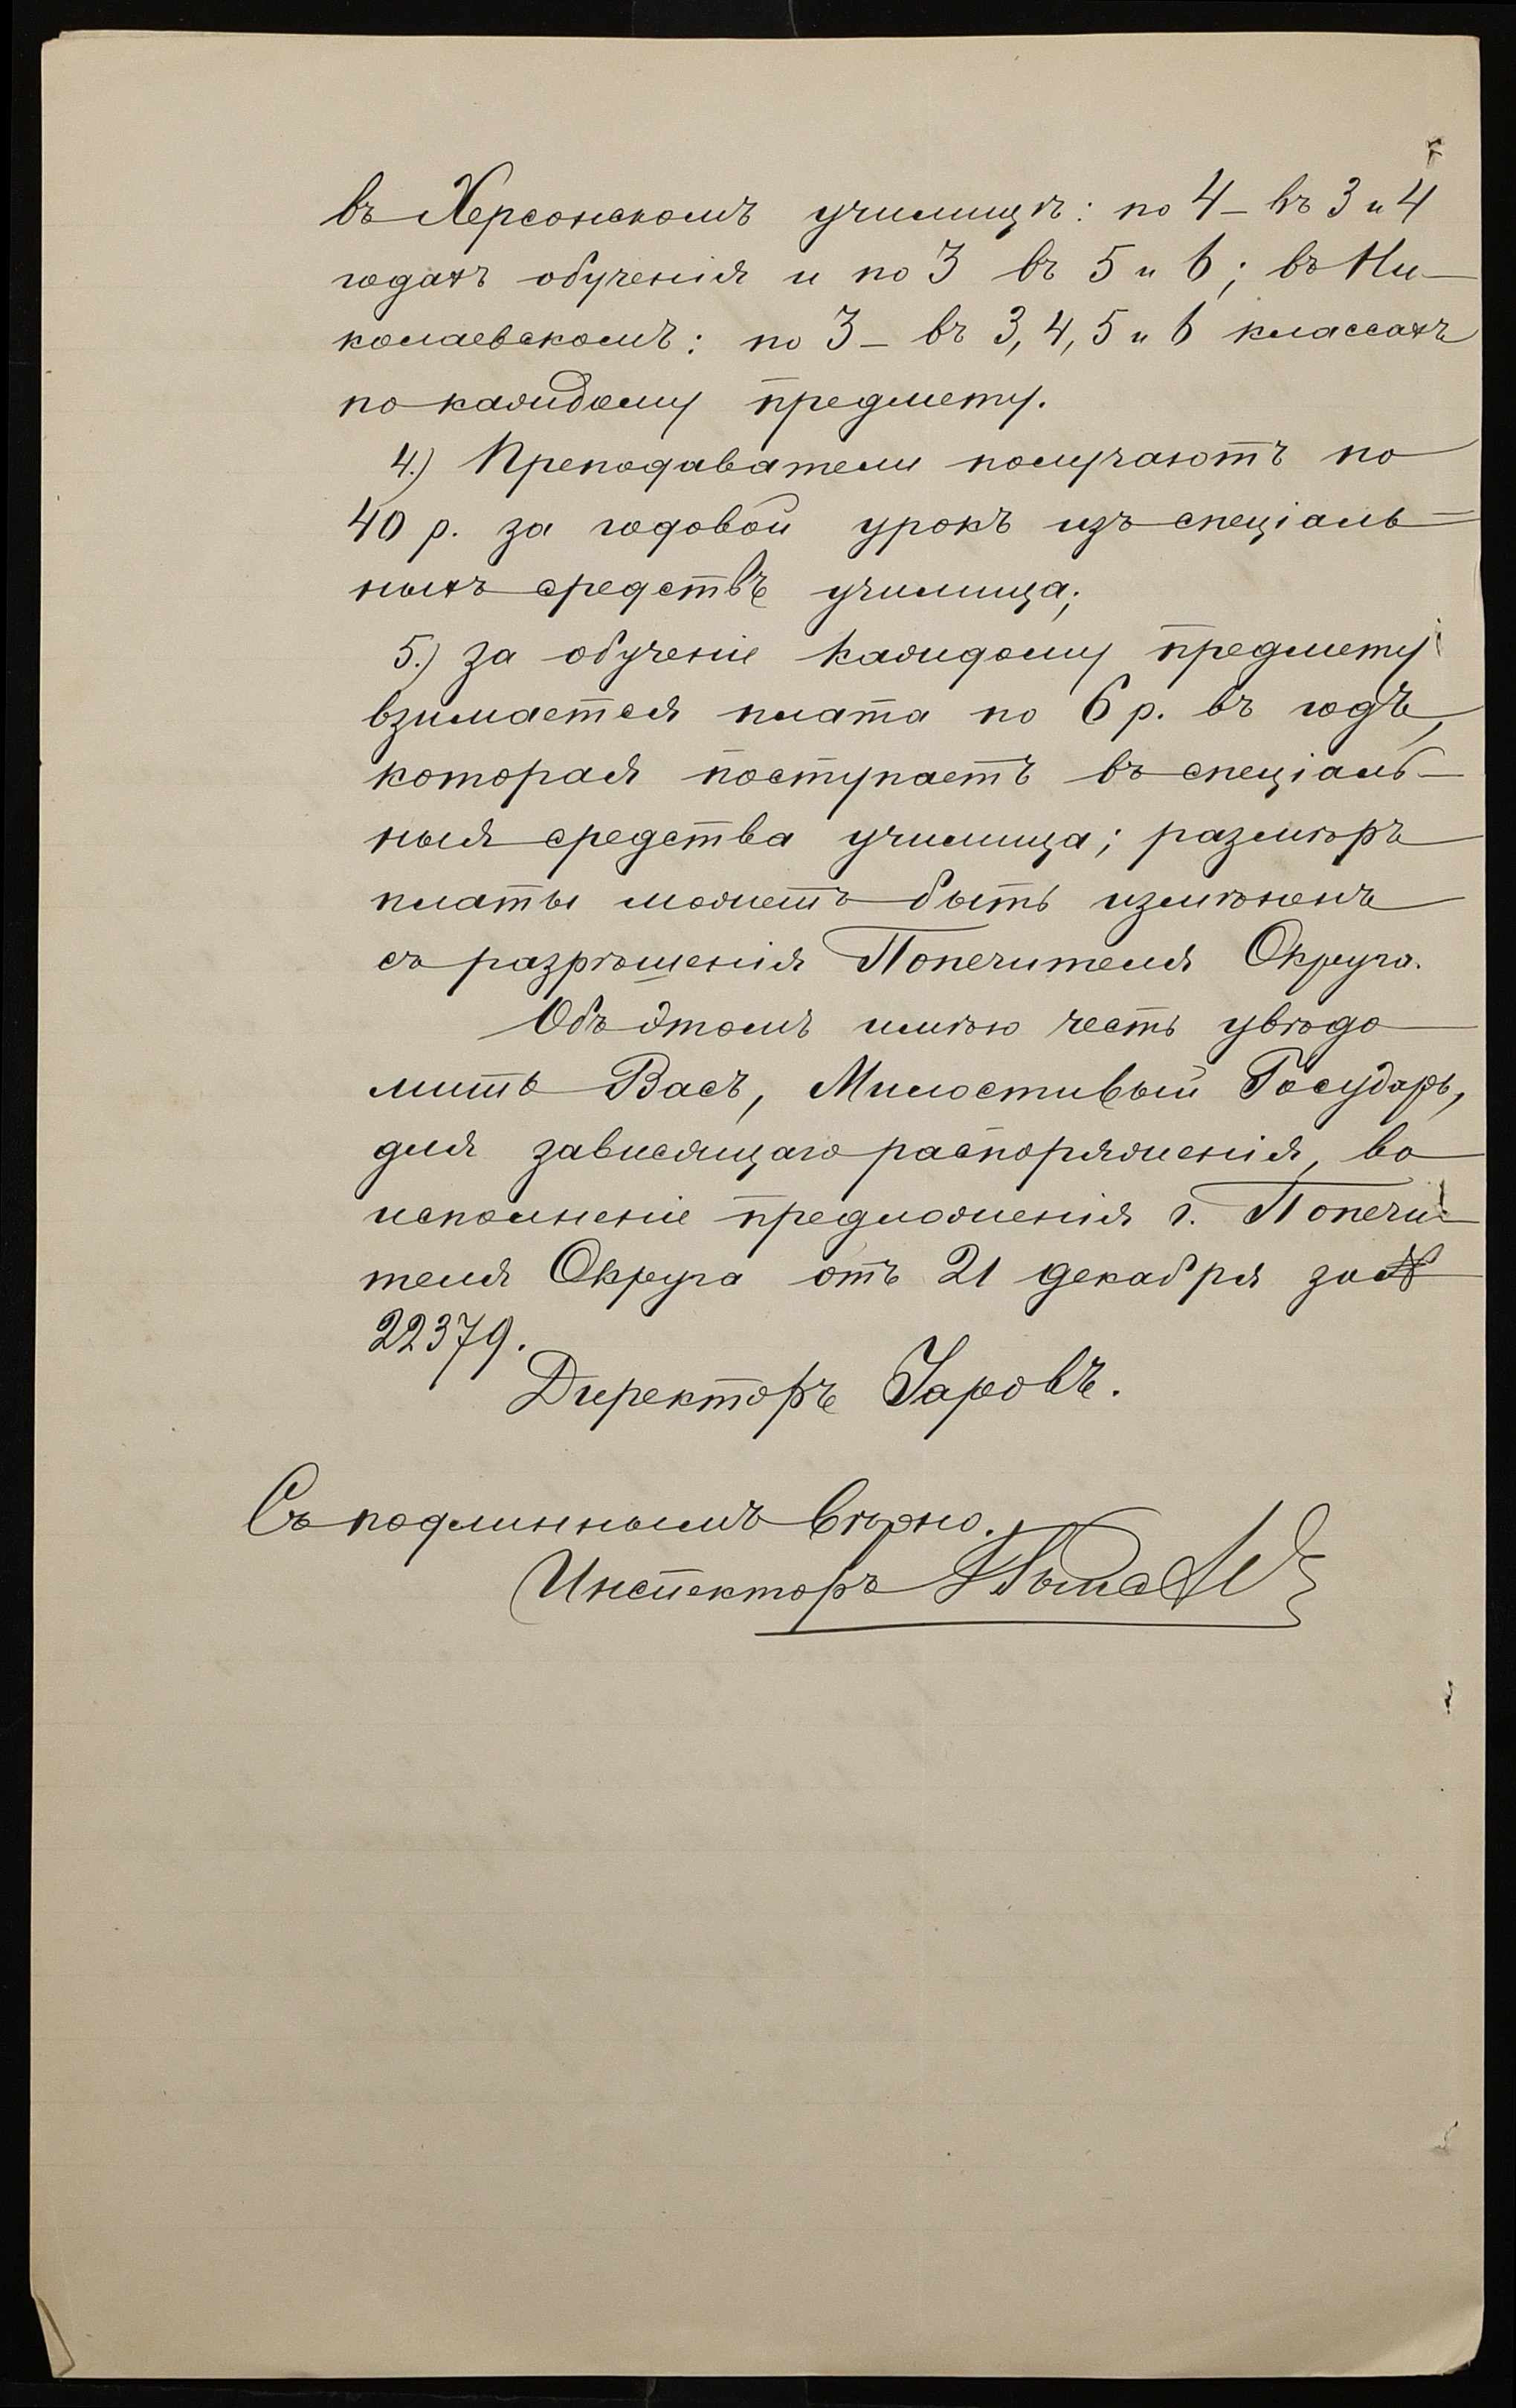 въ Херсонскомъ училищѣ: по 4 – въ 3 и 4
годахъ обученія и по 3 въ 5 и 6; въ Ни-
колаевскомъ: по 3 – въ 3, 4, 5 и 6 классахъ
по каждому предмету.
4.) Преподаватели получаютъ по
40 р. за годовой урокъ изъ спеціаль=
ныхъ средствъ училища;
5.) за обученіе каждому предмету
взимается плата по 6 р. въ годъ,
которая поступаетъ въ спеціаль-
ныя средства училища; размѣръ
платы можетъ быть измѣненъ
съ разрѣшенія Попечителя Округа.
Объ этомъ имѣю честь увѣдо
мить Васъ, Милостивый Государь,
для зависящаго распоряженія, во
исполненіе предложенія г. Попечи-
теля Округа отъ 21 декабря за №
22379.
Директоръ
Съ подлиннымъ вѣрно.
Инспекторъ